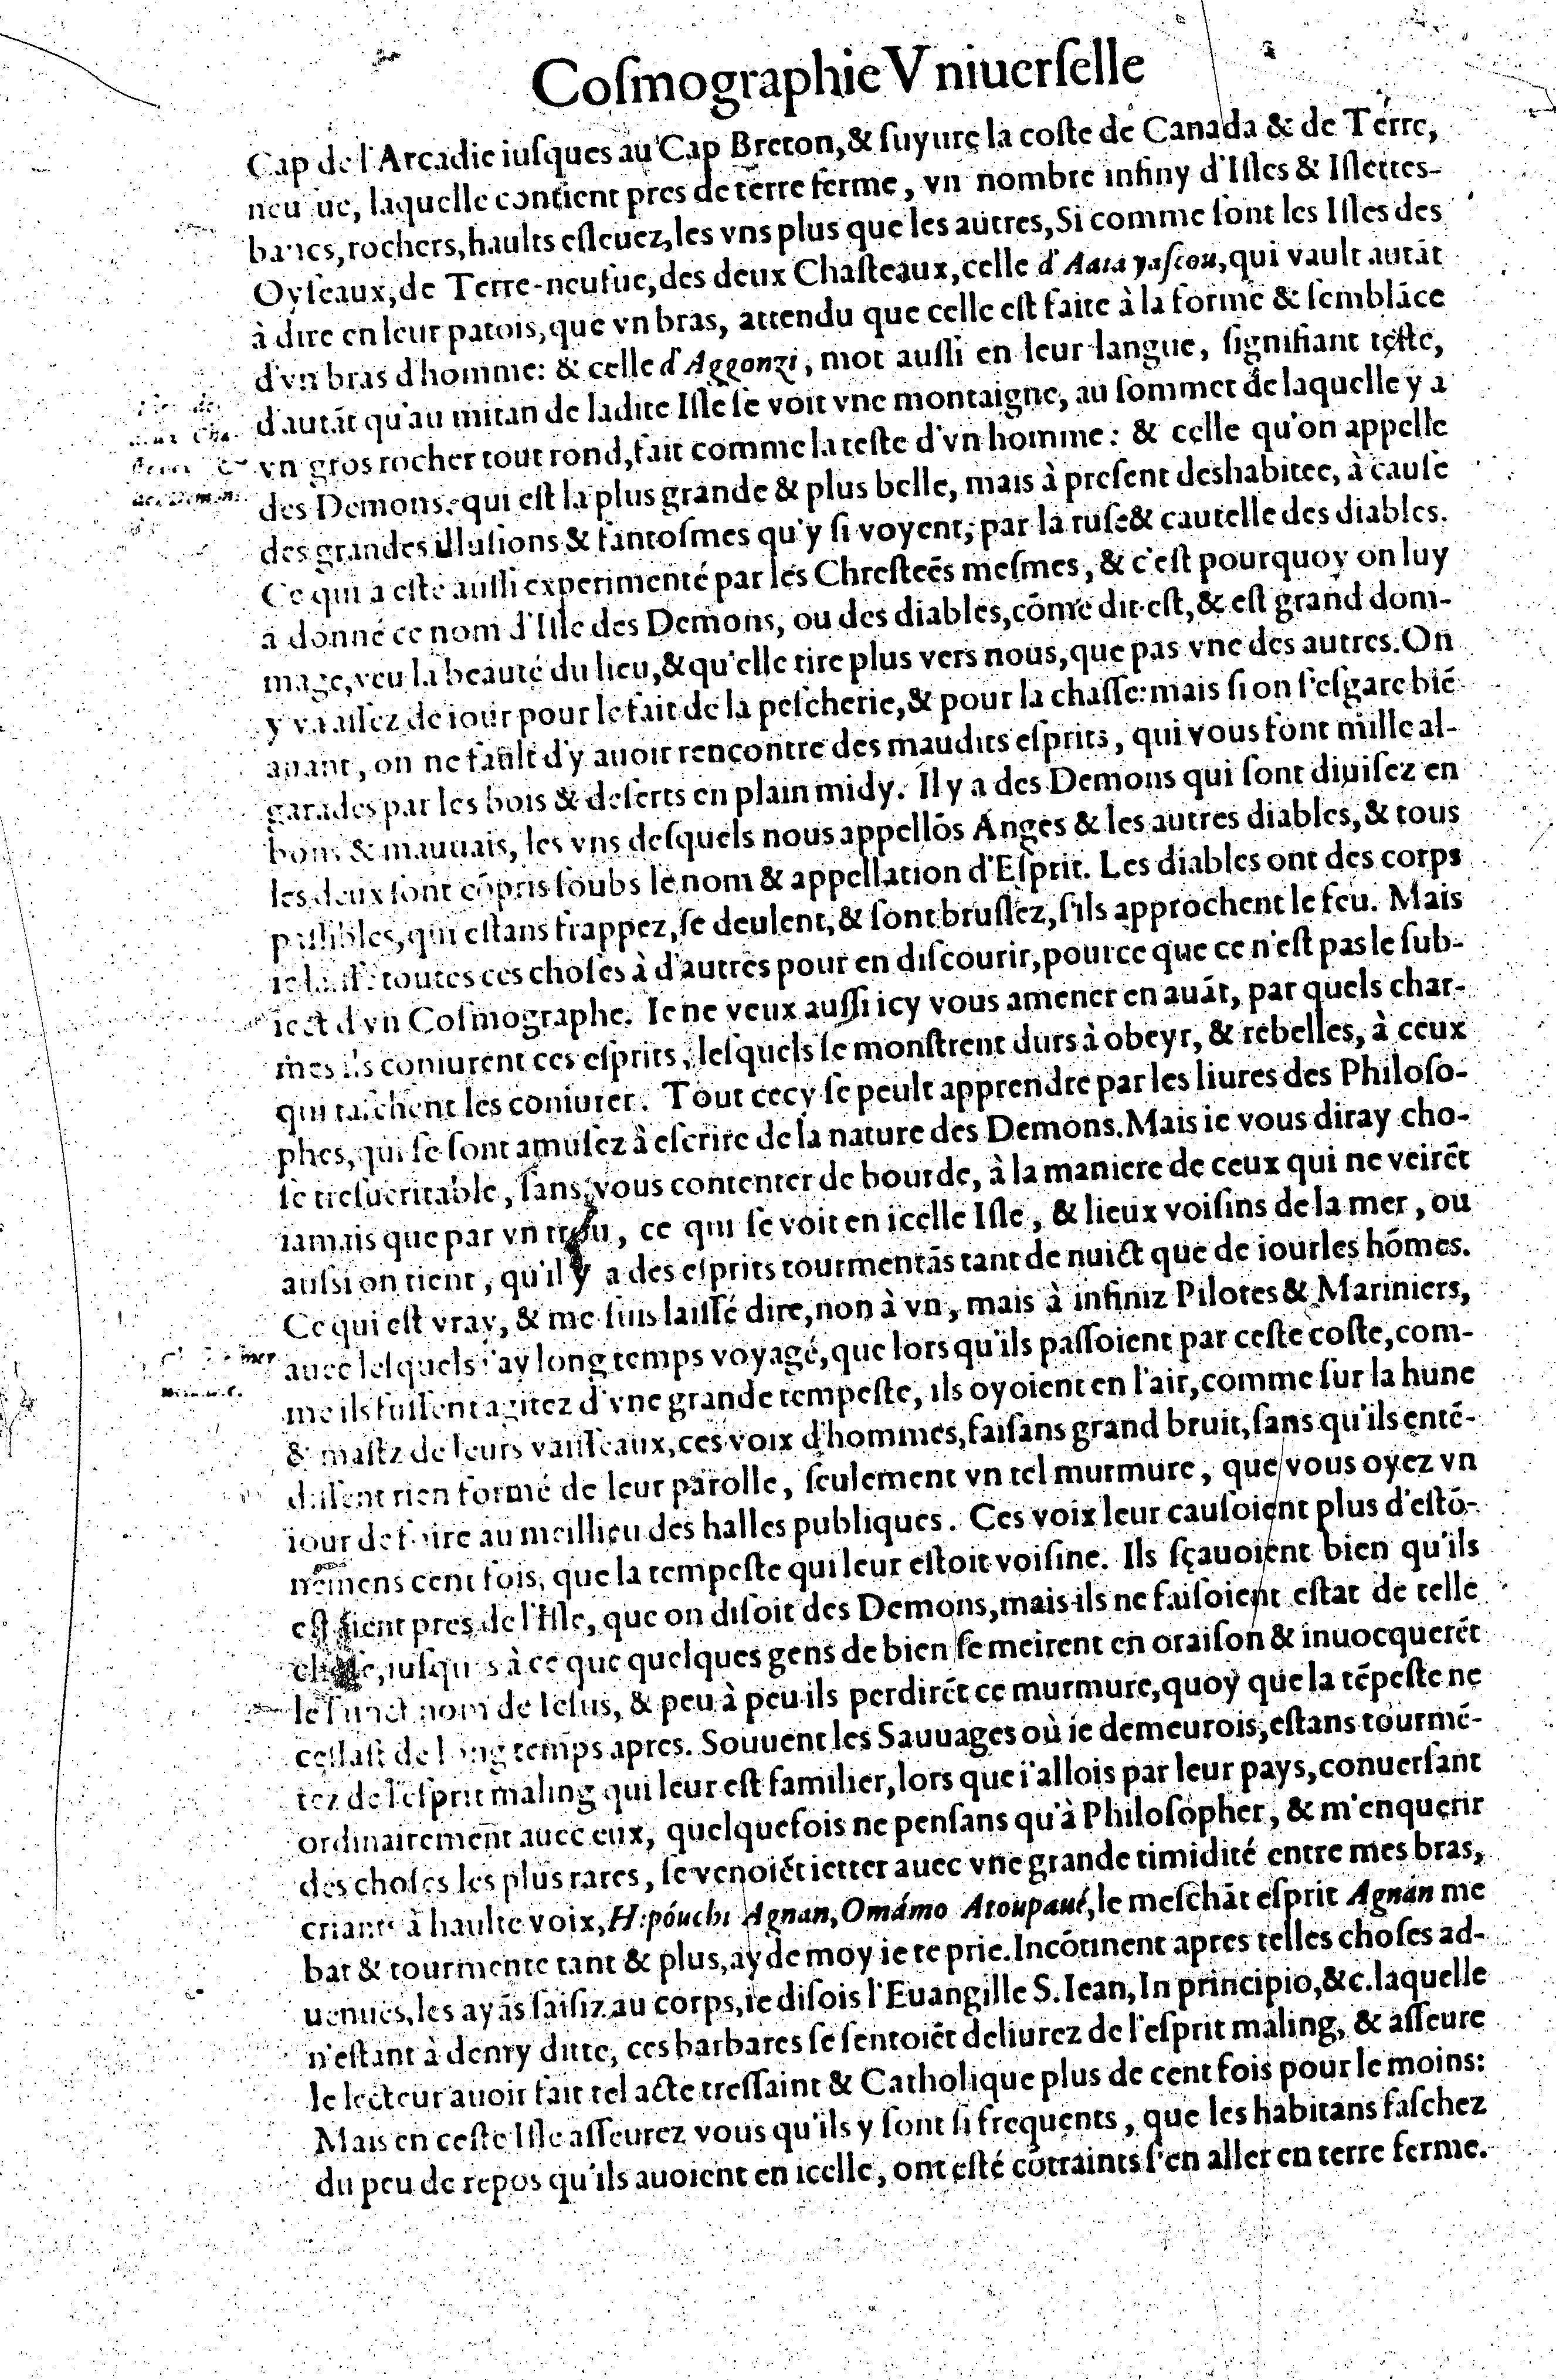 Coſmographie Vniuerſelle
Cap de l'Arcadie iuſques au Cap Breton, & ſuyure la coſte de Canada & de Terre,
neu ue, laquelle contient pres de terre ferme, vn nombre infiny d'Iſles & Iſlettes-
bancs, rochers, haults eſleuez, les vns plus que les autres, Si comme ſont les Iſles des
Oyſeaux, de Terre-neufue, des deux Chaſteaux, celle d'Aaiayaſcou, qui vault autāt
à dire en leur patois, que vn bras, attendu que celle eſt faite à la forme & ſemblāce
d'vn bras d'homme: & celle d'Aggonzi, mot auſſi en leur langue, ſignifiant teſte,
d'autāt qu'au mitan de ladite Iſle ſe voit vne montaigne, au ſommet de laquelle y a
vn gros rocher tout rond, fait comme la teſte d'vn homme: & celle qu'on appelle
des Demons, qui eſt la plus grande & plus belle, mais à preſent deshabitee, à cauſe
des grandes illuſions & fantoſmes qu'y ſi voyent, par la ruſe & cautelle des diables.
Ce qui a eſte auſſi experimenté par les Chreſteēs meſmes, & c'eſt pourquoy on luy
a donné ce nom d'Iſle des Demons, ou des diables, cōme dit eſt, & eſt grand dom-
mage, veu la beauté du lieu, & qu'elle tire plus vers nous, que pas vne des autres. On
y va aſſez de iour pour le fait de la peſcherie, & pour la chaſſe: mais ſi on ſ'eſgare biē
auant, on ne fault d'y auoir rencontre des maudits eſprits, qui vous font mille al-
garades par les bois & deſerts en plain midy. Il y a des Demons qui ſont diuiſez en
bons & mauuais, les vns deſquels nous appellōs Anges & les autres diables, & tous
les deux ſont cōpris ſoubs le nom & appellation d'Eſprit. Les diables ont des corps
paſſibles, qui eſtans frappez, ſe deulent, & ſont bruſlez, ſ'ils approchent le feu. Mais
ie laiſſe toutes ces choſes à d'autres pour en diſcourir, pource que ce n'eſt pas le ſub-
iect d'vn Coſmographe. Ie ne veux auſſi icy vous amener en auāt, par quels char-
mes ils coniurent ces eſprits, leſquels ſe monſtrent durs à obeyr, & rebelles, à ceux
qui taſchent les coniurer. Tout cecy ſe peult apprendre par les liures des Philoſo-
phes, qui ſe ſont amuſez à eſcrire de la nature des Demons. Mais ie vous diray cho-
ſe treſueritable, ſans vous contenter de bourde, à la maniere de ceux qui ne veirēt
iamais que par vn trou, ce qui ſe voit en icelle Iſle, & lieux voiſins de la mer, ou
auſsi on tient, qu'il y a des eſprits tourmentās tant de nuict que de iour les hōmes.
Ce qui eſt vray, & me ſuis laiſſé dire, non à vn, mais à infiniz Pilotes & Mariniers,
auec leſquels i'ay long temps voyagé, que lors qu'ils paſſoient par ceſte coſte, com-
me ils fuſſent agitez d'vne grande tempeſte, ils oyoient en l'air, comme ſur la hune
& maſtz de leurs vaiſſeaux, ces voix d'hommes, faiſans grand bruit, ſans qu'ils entē-
diſſent rien formé de leur parolle, ſeulement vn tel murmure, que vous oyez vn
iour de foire au meillieu des halles publiques. Ces voix leur cauſoient plus d'eſtō-
nemens cent fois, que la tempeſte qui leur eſtoit voiſine. Ils ſçauoient bien qu'ils
eſtoient pres de l'Iſle, que on diſoit des Demons, mais ils ne faiſoient eſtat de telle
choſe, iuſques à ce que quelques gens de bien ſe meirent en oraiſon & inuocquerēt
le ſainct nom de Ieſus, & peu à peu ils perdirēt ce murmure, quoy que la tēpeſte ne
ceſſaſt de long temps apres. Souuent les Sauuages où ie demeurois, eſtans tourmē-
tez de l'eſprit maling qui leur eſt familier, lors que i'allois par leur pays, conuerſant
ordinairement auec eux, quelquefois ne penſans qu'à Philoſopher, & m'enquerir
des choſes les plus rares, ſe venoiēt ietter auec vne grande timidité entre mes bras,
criants à haulte voix, Hipóuchi Agnan, Omámo Atoupaué, le meſchāt eſprit Agnan me
bat & tourmente tant & plus, ayde moy ie te prie. Incōtinent apres telles choſes ad-
uenues, les ayās ſaiſiz au corps, ie diſois l'Euangille S. Iean, In principio, &c. laquelle
n'eſtant à demy ditte, ces barbares ſe ſentoiēt deliurez de l'eſprit maling, & aſſeure
le lecteur auoir fait tel acte treſſaint & Catholique plus de cent fois pour le moins:
Mais en ceſte Iſle aſſeurez vous qu'ils y ſont ſi frequents, que les habitans faſchez
du peu de repos qu'ils auoient en icelle, ont eſté cōtraints ſ'en aller en terre ferme.